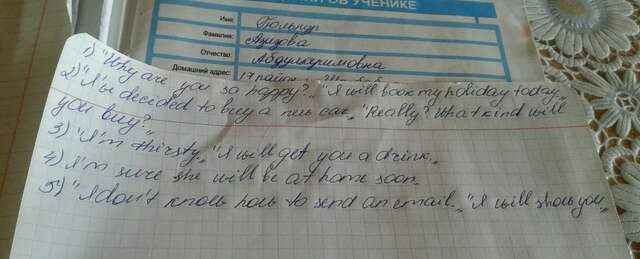 ОБ УЧЕНИКЕ
Имя: Гюльнур
Фамилия: Азизова
Отчество: Абдулкаримовна
Домашний адрес: 17
1) "Why are you so happy?„ "I will book my holiday today„
2) "I've decided to buy a new car„ "Really? What kind will
you buy?"
3) "I'm thirsty„ "I will get you a drink„
4) I'm sure she will be at home soon.
5) "I don't know how to send an email„ "I will show you„